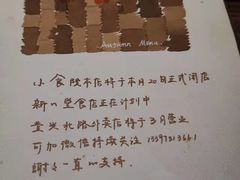 Autumn Menu.
小食院本店将于本月20日正式闭店
新的堂食店正在计划中
北路外卖店将于3月营业
可加微信持续关注
谢谢一直以来支持.